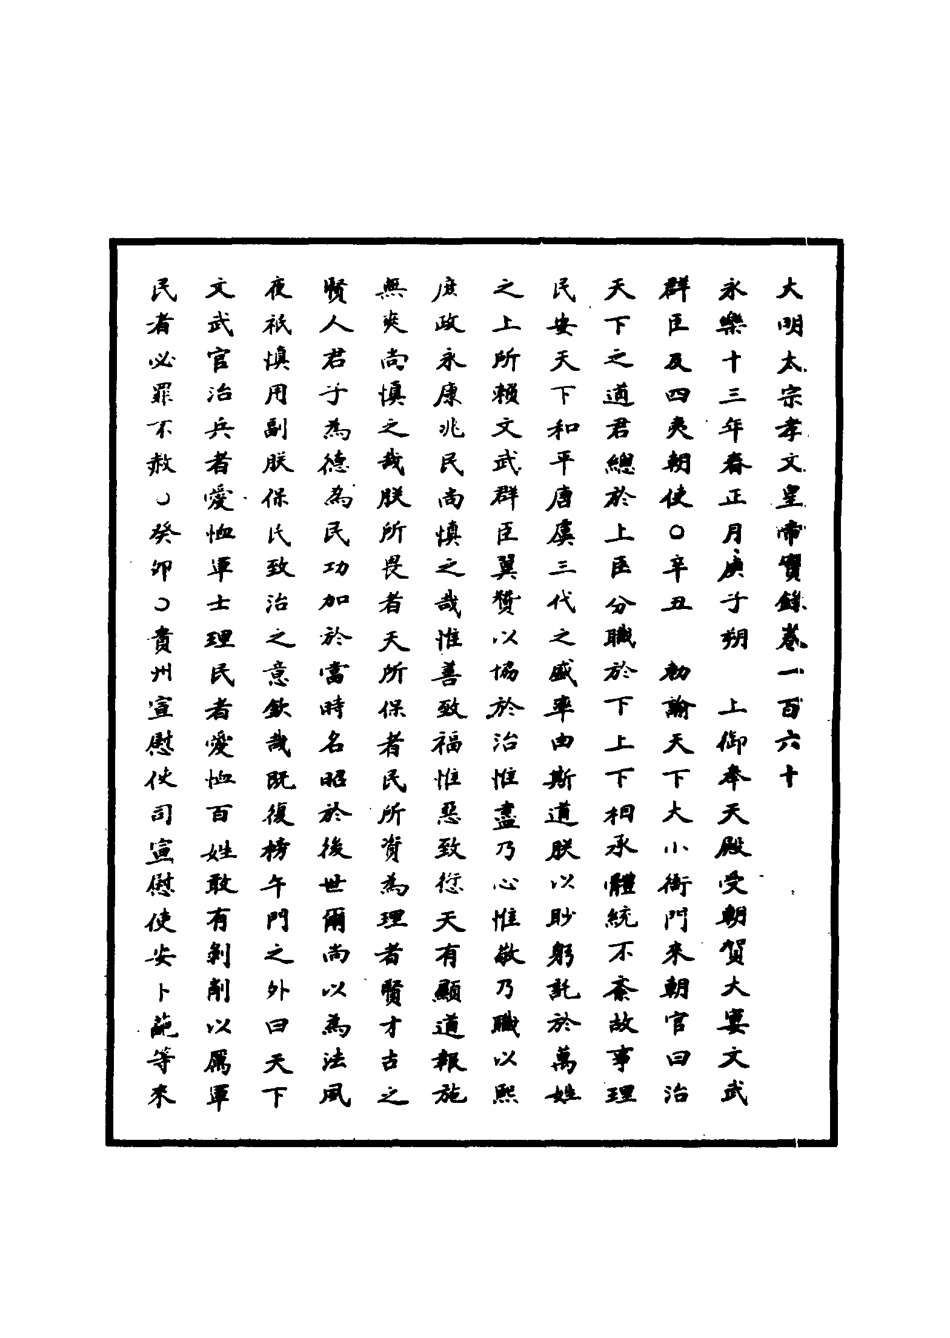 大明太宗孝文皇帝實錄卷一百六十
永樂十三年春正月庚子朔　上御奉天殿受朝賀大宴文武
群臣及四夷朝使○辛丑　勑諭天下大小衙門來朝官曰治
天下之道君總於上臣分職於下上下相承體統不紊故事理
民安天下和平唐虞三代之盛率由斯道朕以眇躬託於萬姓
之上所賴文武群臣翼贊以協於治惟盡乃心惟敬乃職以熙
庶政永康兆民尚慎之哉惟善致福惟惡致愆天有顯道報施
無爽尚慎之哉朕所畏者天所保者民所資為理者賢才古之
賢人君子為德為民功加於當時名昭於後世爾尚以為法夙
夜祇慎用副朕保民致治之意欽哉既復榜午門之外曰天下
文武官治兵者愛恤軍士理民者愛恤百姓敢有剝削以厲軍
民者必罪不赦○癸卯○貴州宣慰使司宣慰使安卜葩等來